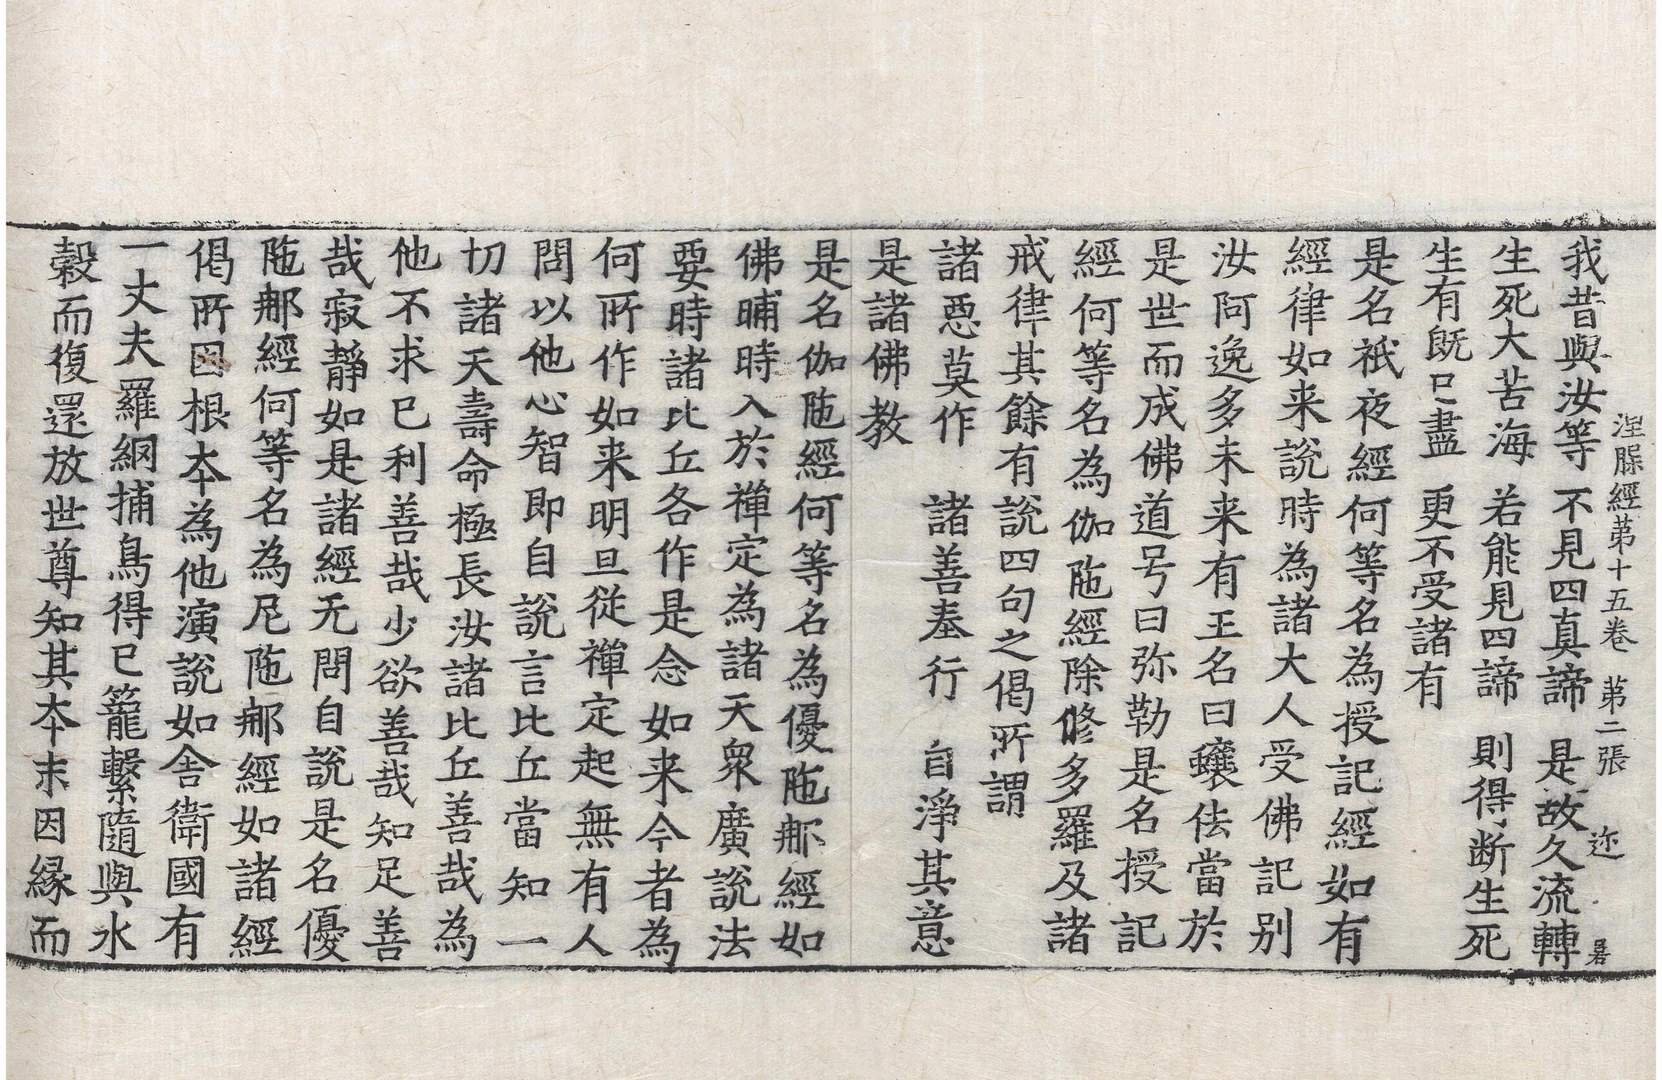 涅脲經苐十五卷 苐二張 迩
我昔與汝等 不見四真諦 是故久流轉
生死大苦海 若能見四諦 則得断生死
生有既已盡 更不受諸有
是名祇夜經何等名為授記經如有
經律如来說時為諸大人受佛記别
汝阿逸多未来有王名曰蠰佉當於
是世而成佛道号曰弥勒是名授記
經何等名為伽陁經除修多羅及諸
戒律其餘有說四句之偈所謂
諸惡莫作 諸善奉行 自淨其意
是諸佛教
是名伽陁經何等名為優陁𨚗經如
佛晡時入於禪定為諸天衆廣說法
要時諸比丘各作是念如来今者為
何所作如来明旦從禪定起無有人
問以他心智即自說言比丘當知一
切諸天壽命極長汝諸比丘善哉為
他不求已利善哉少欲善哉知足善
哉寂靜如是諸經无問自說是名優
陁𨚗經何等名為尼陁𨚗經如諸經
偈所因根本為他演說如舍衛國有
一丈夫羅網捕鳥得已籠繫隨與水
穀而復還放世尊知其本末因緣而